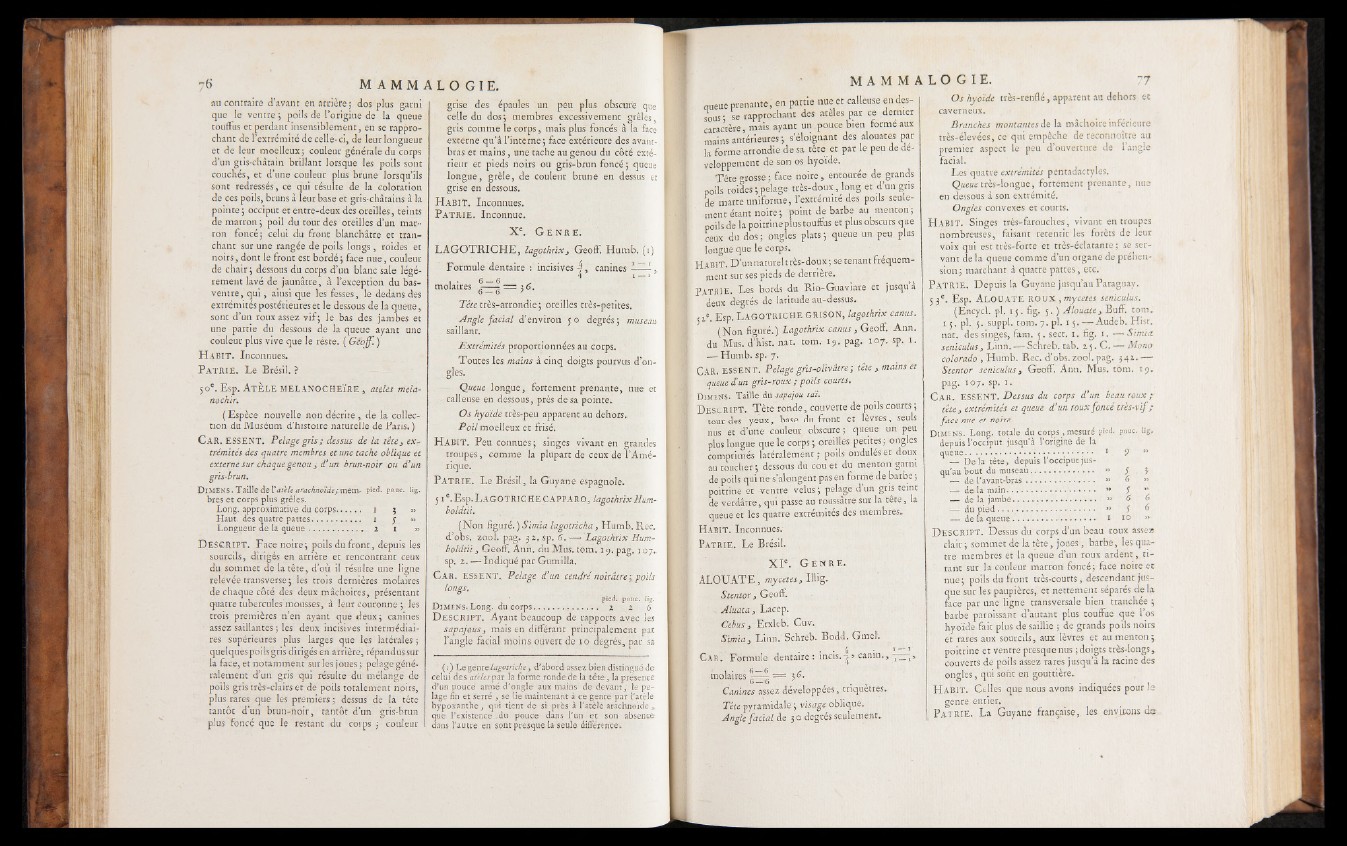 76 MAMMALOGIE.
au contraire d'avant en arrière ; dos plus garni
que le ventre ; poils de l'origine de la queue
touffus et perdant insensiblement, en se rappro-
chant de l'extrémité de celle-ci, de leur longueur
et de leur moelleux ; couleur générale du corps
d'un gris-châtain brillant lorsque les poils sont
couchés, et d'une couleur plus brune lorsqu'ils
sont redressés, ce qui résulte de la coloration
de ces poils, bruns à leur base et gris-châtains à la
pointe ; occiput et entre-deux des oreilles, teints
de marron ; poil du tour des oreilles d'un mar-
ron foncé ; celui du front blanchâtre et tran-
chant sur une rangée de poils longs, roides et
noirs, dont le front est bordé ; face nue, couleur
de chair ; dessous du corps d'un blanc sale légé-
rement lavé de jaunâtre, à l'exception du bas-
ventre, qui, ainsi que les fesses, le dedans des
extrémités postérieures et le dessous de la queue,
sont d'un roux assez vif ; le bas des jambes et
une partie du dessous de la queue ayant une
couleur plus vive que le reste. (Géoff.)
HABIT. Inconnues.
PATRIE. Le Brésil. ?
50e. Esp. ATÈLE MELANOCHEÏRE, ateles mela-
nochir.
(Espèce nouvelle non décrite, de la collec-
tion du Muséum d'histoire naturelle de Paris.)
CAR. ESSENT. Pelage gris ; dessus de la tête, ex-
trémités des quatre membres et une tache oblique et
externe sur chaque genou, d'un brun-noir ou d'un
gris-brun.
DIMENS. Taille de l'atèle arachnoïde ; mem- pied. pouc. lig.
bres et corps plus grêles.
Long. approximative du corps...... 1 3 »
Haut. des quatre pattes........... 1 5 »
Longueur de la queue............ 2 1 »
DESCRIPT. Face noire ; poils du front, depuis les
sourcils, dirigés en arrière et rencontrant ceux
du sommet de la tête, d'où il résulte une ligne
relevée transverse ; les trois dernières molaires
de chaque côté des deux mâchoires, présentant
quatre tubercules mousses, à leur couronne ; les
trois premières n'en ayant que deux ; canines
assez saillantes ; les deux incisives intermédiai-
res supérieures plus larges que les latérales ;
quelques poils gris dirigés en arrière, répandus sur
la face, et notamment sur les joues ; pelage géné-
ralement d'un gris qui résulte du mélange de
poils gris très-clairs et de poils totalement noirs,
plus rares que les premiers ; dessus de la tête
tantôt d'un brun-noir, tantôt d'un gris-brun
plus foncé que le restant du corps ; couleur
grise des épaules un peu plus obscure que
celle du dos ; membres excessivement grêles,
gris comme le corps, mais plus foncés à la face
externe qu'à l'interne ; face extérieure des avant-
bras et mains, une tache au genou du côté exté-
rieur et pieds noirs ou gris-brun foncé ; queue
longue, grêle, de couleur brune en dessus et
grise en dessous.
HABIT. Inconnues.
PATRIE. Inconnue.
Xe. GENRE.
LAGOTRICHE, lagothrix, Geoff. Humb. (1)
Formule dentaire : incisives 4/4, canines 1—1/1—1,
molaires 6—6/6—6 = 36.
Tête très-arrondie ; oreilles très-petites.
Angle facial d'environ 50 degrés ; museau
saillant.
Extrémités proportionnées au corps.
Toutes les mains à cinq doigts pourvus d'on-
gles.
Queue longue, fortement prenante, nue et
calleuse en dessous, près de sa pointe.
Os hyoïde très-peu apparent au dehors.
Poil moelleux et frisé.
HABIT. Peu connues ; singes vivant en grandes
troupes, comme la plupart de ceux de l'Amé-
rique.
PATRIE. Le Brésil, la Guyane espagnole.
51e. Esp. LAGOTRICHE CAPPARO, lagothrix Hum-
boldtii.
(Non figuré.) Simia lagotricha, Humb. Rec.
d'obs. zool. pag. 32. sp. 6. — Lagothrix Hum-
boldtii, Geoff. Ann. du Mus. tom. 19. pag. 107.
sp. 2. — Indiqué par Gumilla.
CAR. ESSENT. Pelage d'un cendré noirâtre ; poils
longs.
pied. pouc. lig.
DIMENS. Long. du corps.............. 2 2 6
DESCRIPT. Ayant beaucoup de rapports avec les
sapajous, mais en différant principalement par
l'angle facial moins ouvert de 10 degrés, par sa
(1) Le genre lagotriche, d'abord assez bien distingué de
celui des atèles par la forme ronde de la tête, la présence
d'un pouce armé d'ongle aux mains de devant, le pe-
lage fin et serré, se lie maintenant à ce genre par l'atèle
hypoxanthe, qui tient de si près à l'atèle arachnoïde,
que l'existence du pouce dans l'un et son absence
dans l'autre en sont presque la seule différence.
MAMMALOGIE. 77
queue prenante, en partie nue et calleuse en des-
sous ; se rapprochant des atèles par ce dernier
caractère, mais ayant un pouce bien formé aux
mains antérieures ; s'éloignant des alouates par
la forme arrondie de sa tête et par le peu de dé-
veloppement de son os hyoïde.
Tête grosse ; face noire, entourée de grands
poils roides ; pelage très-doux, long et d'un gris
de marte uniforme, l'extrémité des poils seule-
ment étant noire ; point de barbe au menton ;
poils de la poitrine plus touffus et plus obscurs que
ceux du dos ; ongles plats ; queue un peu plus
longue que le corps.
HABIT. D'un naturel très-doux ; se tenant fréquem-
ment sur ses pieds de derrière.
PATRIE. Les bords du Rio-Guaviare et jusqu'à
deux degrés de latitude au-dessus.
52e. Esp. LAGOTRICHE GRISON, lagothrix canus.
(Non figuré.) Lagothrix canus, Geoff. Ann.
du Mus. d'hist. nat. tom. 19. pag. 107. sp. 1.
— Humb. sp. 7.
CAR. ESSENT. Pelage gris-olivâtre ; tête, mains et
queue d'un gris-roux ; poils courts.
DIMENS. Taille du sapajou saï.
DESCRIPT. Tête ronde, couverte de poils courts ;
tour des yeux, base du front et lèvres, seuls
nus et d'une couleur obscure ; queue un peu
plus longue que le corps ; oreilles petites ; ongles
comprimés latéralement ; poils ondulés et doux
au toucher ; dessous du cou et du menton garni
de poils qui ne s'alongent pas en forme de barbe ;
poitrine et ventre velus ; pelage d'un gris teint
de verdâtre, qui passe au roussâtre sur la tête, la
queue et les quatre extrémités des membres.
HABIT. Inconnues.
PATRIE. Le Brésil.
XIe. GENRE.
ALOUATE, mycetes, Illig.
Stentor, Geoff.
Aluata, Lacép.
Cebus, Erxleb. Cuv.
Simia, Linn. Schreb. Bodd. Gmel.
CAR. Formule dentaire : incis. 4/4, canin., 1—1/1—1,
molaires 6—6/6—6 = 36.
Canines assez développées, triquètres.
Tête pyramidale ; visage oblique.
Angle facial de 30 degrés seulement.
Os hyoïde très-renflé, apparent au dehors et
caverneux.
Branches montantes de la mâchoire inférieure
très-élevées, ce qui empêche de reconnoître au
premier aspect le peu d'ouverture de l'angle
facial.
Les quatre extrémités pentadactyles.
Queue très-longue, fortement prenante, nue
en dessous à son extrémité.
Ongles convexes et courts.
HABIT. Singes très-farouches, vivant en troupes
nombreuses, faisant retentir les forêts de leur
voix qui est très-forte et très-éclatante ; se ser-
vant de la queue comme d'un organe de préhen-
sion ; marchant à quatre pattes, etc.
PATRIE. Depuis la Guyane jusqu'au Paraguay.
53e. Esp. ALOUATE ROUX, mycetes seniculus.
(Encycl. pl. 15. fig. 5.) Alouate, Buff. tom.
15. pl. 5. suppl. tom. 7. pl. 15. — Audeb. Hist.
nat. des singes, fam. 5. sect. 1. fig. 1. — Simia
seniculus, Linn. — Schreb. tab. 25. C. — Mono
colorado, Humb. Rec. d'obs. zool. pag. 342. —
Stentor seniculus, Geoff. Ann. Mus. tom. 19.
pag. 107. sp. 1.
CAR. ESSENT. Dessus du corps d'un beau roux ;
tête, extrémités et queue d'un roux foncé très-vif ;
face nue et noire.
DIMENS. Long. totale du corps, mesuré pied. pouc. lig.
depuis l'occiput jusqu'à l'origine de la
queue.......................... 1 9 »
— De la tête, depuis l'occiput jus-
qu'au bout du museau.............. » 5 3
— de l'avant-bras............... » 6 »
— de la main................... » 5 »
— de la jambe.................. » 6 6
— du pied..................... » 5 6
— de la queue................. 1 10 »
DESCRIPT. Dessus du corps d'un beau roux assez
clair ; sommet de la tête, joues, barbe, les qua-
tre membres et la queue d'un roux ardent, ti-
rant sur la couleur marron foncé ; face noire et
nue ; poils du front très-courts, descendant jus-
que sur les paupières, et nettement séparés de la
face par une ligne transversale bien tranchée ;
barbe paroissant d'autant plus touffue que l'os
hyoïde fait plus de saillie ; de grands poils noirs
et rares aux sourcils, aux lèvres et au menton ;
poitrine et ventre presque nus ; doigts très-longs,
couverts de poils assez rares jusqu'à la racine des
ongles, qui sont en gouttière.
HABIT. Celles que nous avons indiquées pour le
genre entier.
PATRIE. La Guyane française, les environs de